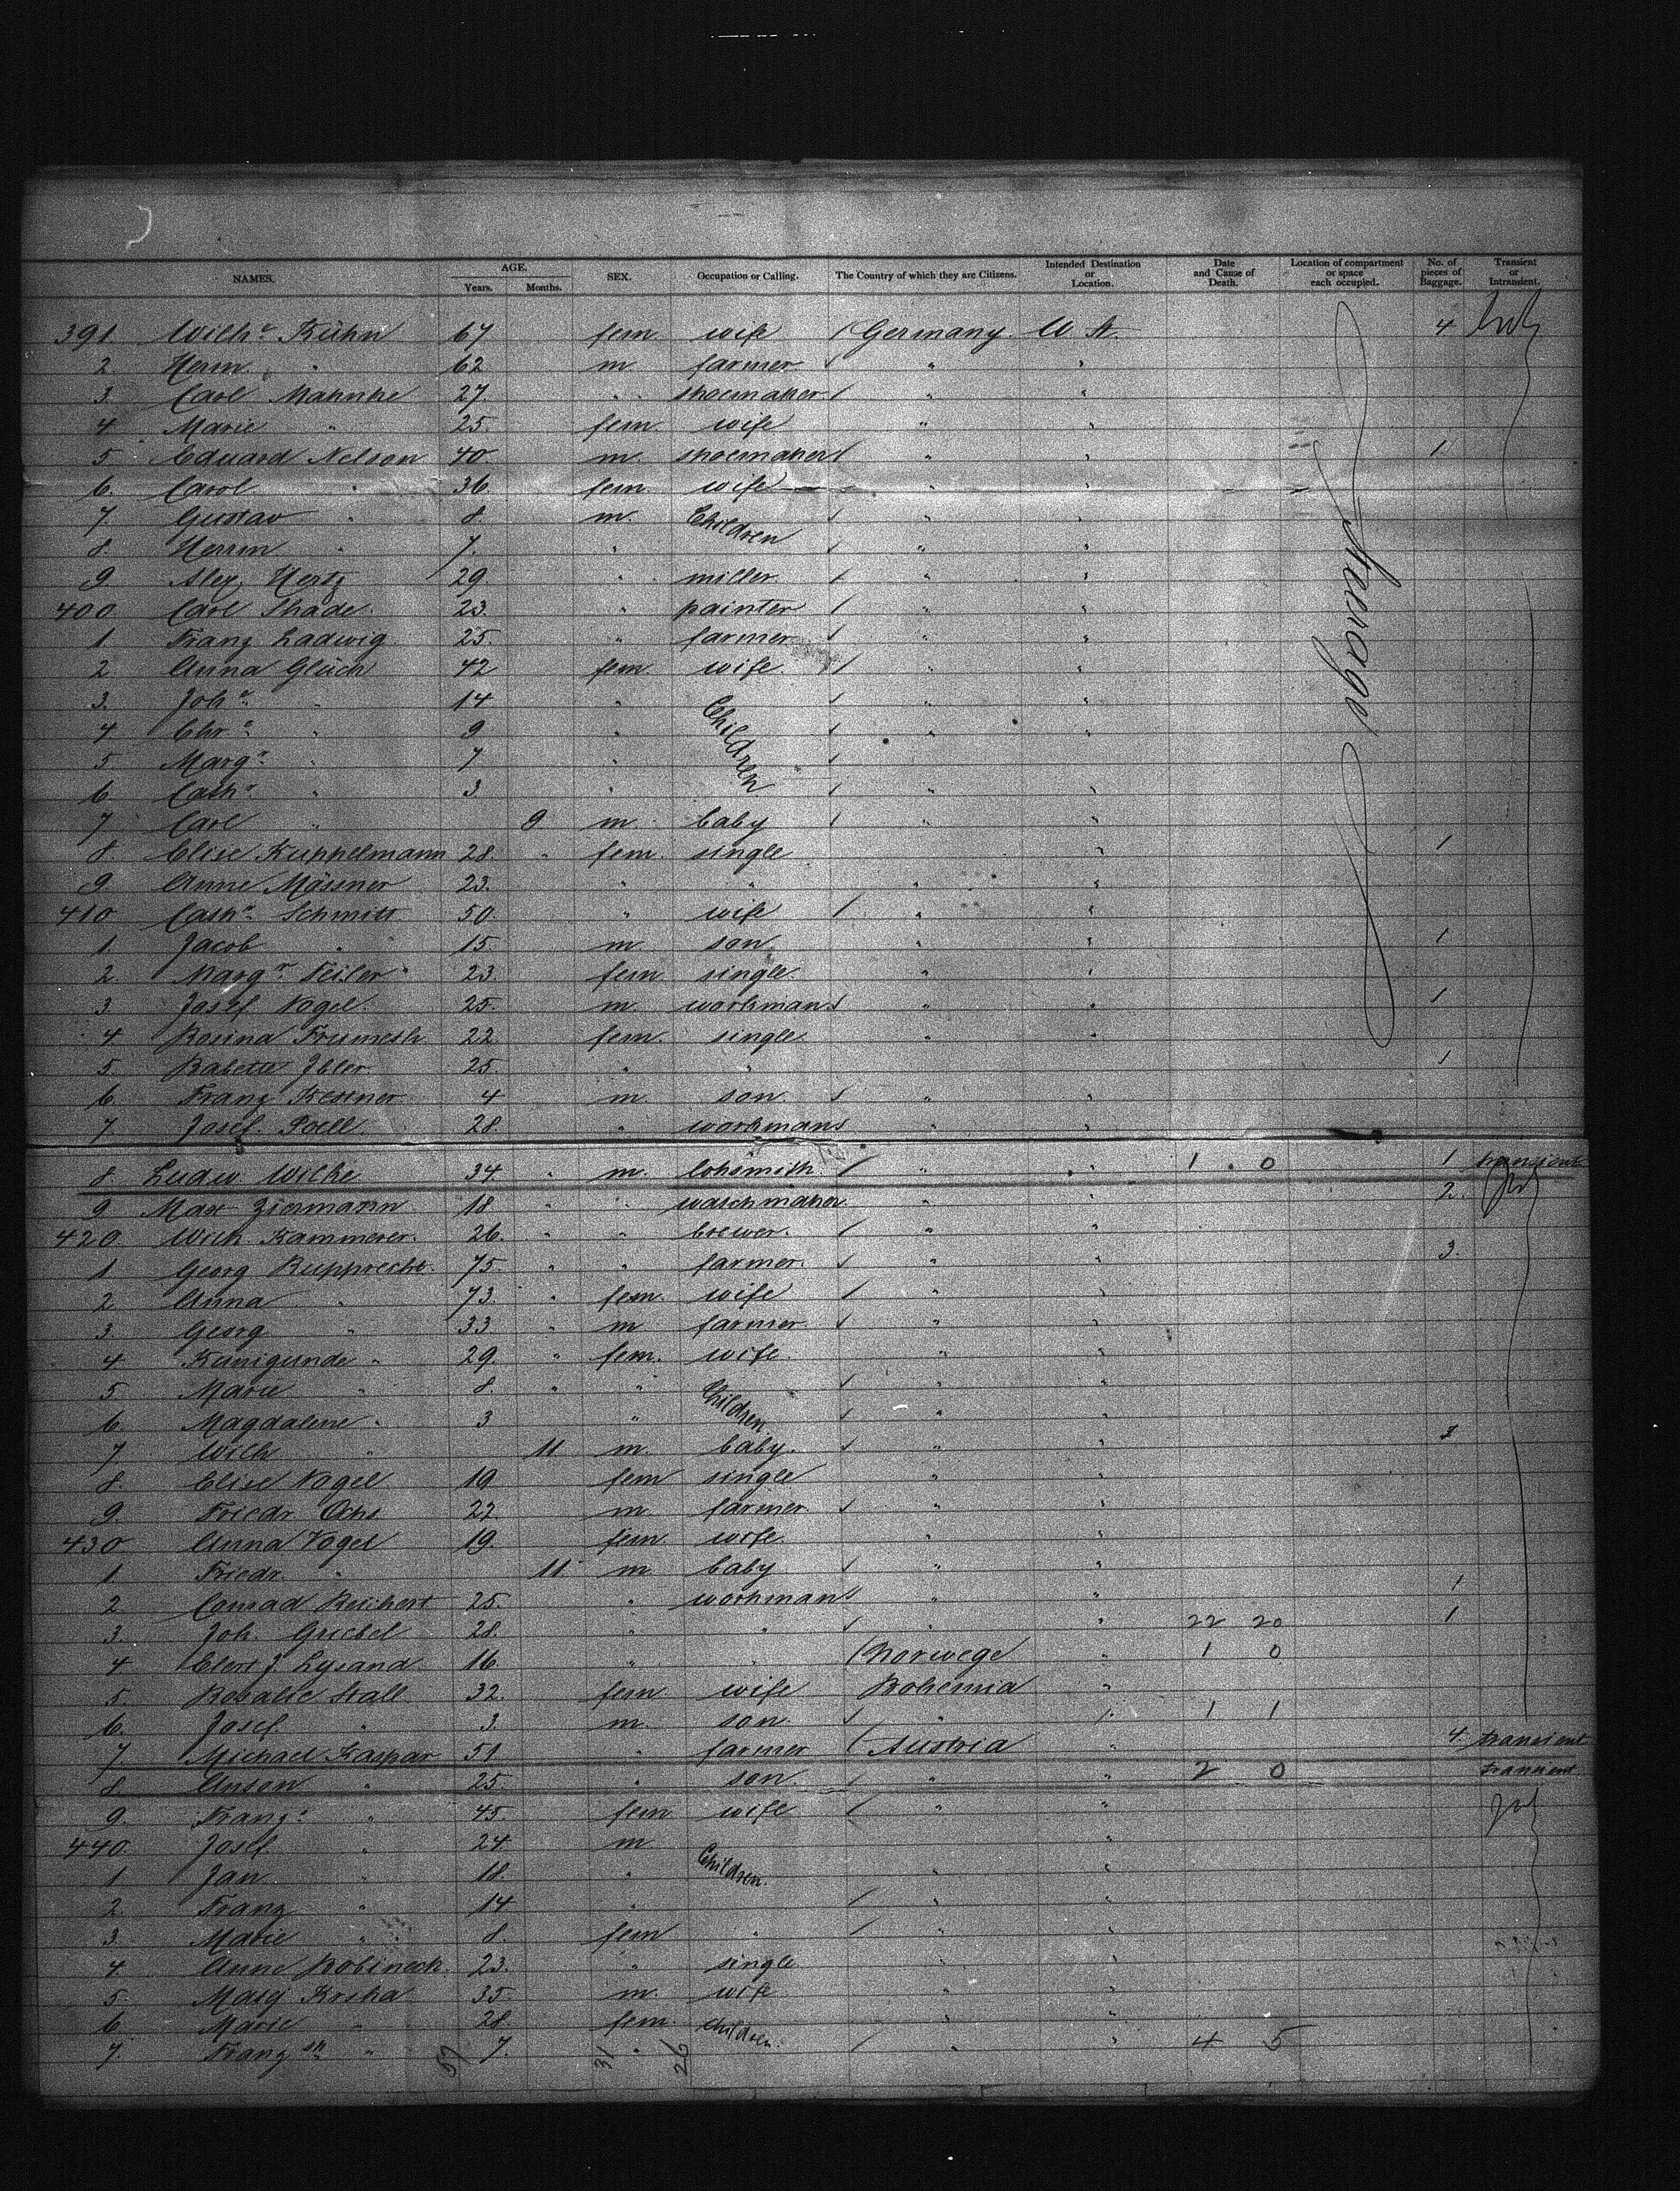 NAMES. AGE. Years. Months. SEX. Occupation or Calling. The Country of which they are Citizens. Intended Destination or Location. Date and Cause of Death. Location of compartment or space each occupied. No. of pieces of Baggage. Transient or Intransient.
391. Wilhe. Kühn 67 fem. wife / Germany. W. St. 4
2. Herm. " 62 m farmer " "
3. Carl Mahnke 27. " shoemaker / " "
4 Marie " 25. fem. wife " "
5 Eduard Nelson 40. m. shoemaker / " " 1
6. Carol. " 36. fem. wife " "
7. Gustav " 8. m. Children " "
8. Herrm " 7. " " "
9 Alex. Hertz 29 " miller. / " "
400. Carl Shade. 23. " painter / " "
1. Franz Ladwig 25. " farmer. / " "
2. Anna Glück 42 fem. wife. / " "
3. Joha. " 14 " Children " "
4 Chre. " 9 " " "
5 Margr. " 7 "
6. Cathr. " 3. " " "
7 Carl " 9 m. baby / " "
8. Elise Kuppelmann 28. " fem. single " 1
9 Anne Mässner 23. " " " "
410 Cathr. Schmitt 50. " wife / " "
1. Jacob " 15. m. son. " " 1
2. Margr. Feiler 23. fem. single. " "
3. Josef Vogel. 25. m. workman / " " 1
4 Rosina 22 fem. single. " "
5 Babette Ibler. 25. " " 1
6. Franz Kestner 4 m. son. / " "
7 Josef Poell. 28. " workman / " "
steerage
8. Ludw. Wilke 34. " m. lohsmith / " " 1 . 0 1 transient
9 Max Ziermann 18 " " watchmaker. " " 2.
420. Wilh. Kammerer. 26. " " brewer. / " "
1 Georg Rupprecht. 75 " " farmer. / " " 3.
2 Anna " 73. " fem. wife / " "
3. Georg " 33 " m farmer. / " "
4 Kunigunde " 29. " fem. wife. " "
5 Marie " 8. " " Children. / " "
6. Magdalene " 3 " / " "
7. Wilh " 11 m. baby. / " "
8. Elise Vogel 19 fem single " "
9 Friedr. Ochs 22 m. farmer. / " "
430 Anna Vogel 19. fem. wife. " "
1 Friedr. " 11 m baby / " "
2 Conrad Reichert 25. " workman / " " 1
3. Joh. Griebel 28. " " / " " 22 20 1
4 16. " " / Norwege " 1 0
5. Rosalie Stall 32. fem wife Bohemia "
6. Josef. " 3. m. son. / " 1 1
7 Michael Kaspar 51 " farmer / Austria 4 transient
8. Anton " 25. " son. / " " 2 0 transient
9. Franz. " 45. fem wife / " "
440. Josef. " 24. m "
1 Jan " 18. " Children. " "
2. Franz " 14 " / " "
3. Marie " 8. fem " / " "
4. Anne Robineck. 23. " single. " "
5. Krska 35. m. wife " "
6. Marie " 28. fem. children. " "
7. Franz " 7. " / " " 4 5
57 31 26